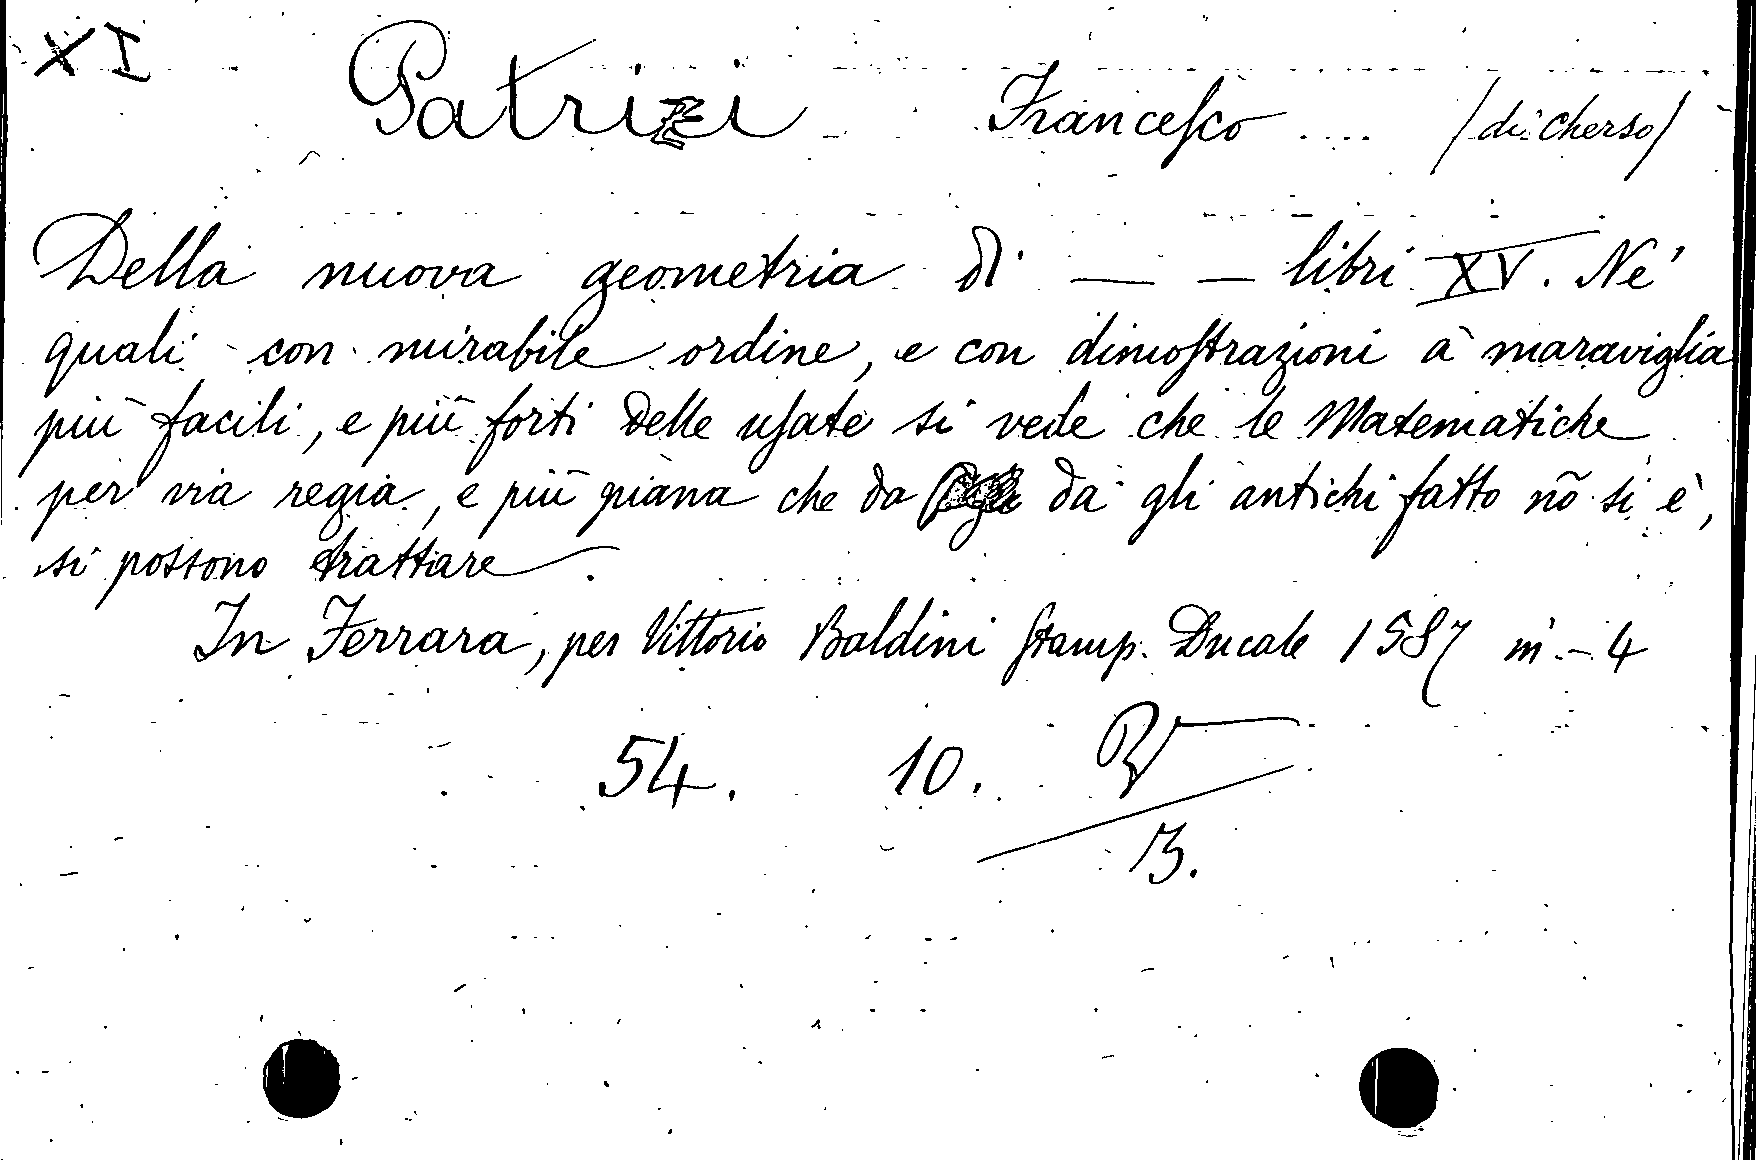 XI Patrizi Francesco .... /di Cherso/
Della nuova geometria di — — libri XV. Ne'
quali con mirabile ordine, e con dimostrazioni à maraviglia
più facili, e più forti delle usate si vede che le Matematiche
per via regia, e più piana che da da gli antichi fatto nõ si è,
si possono trattare.
In Ferrara, per Vittorio Baldini Stamp. Ducale 1587 in-4
54. 10.